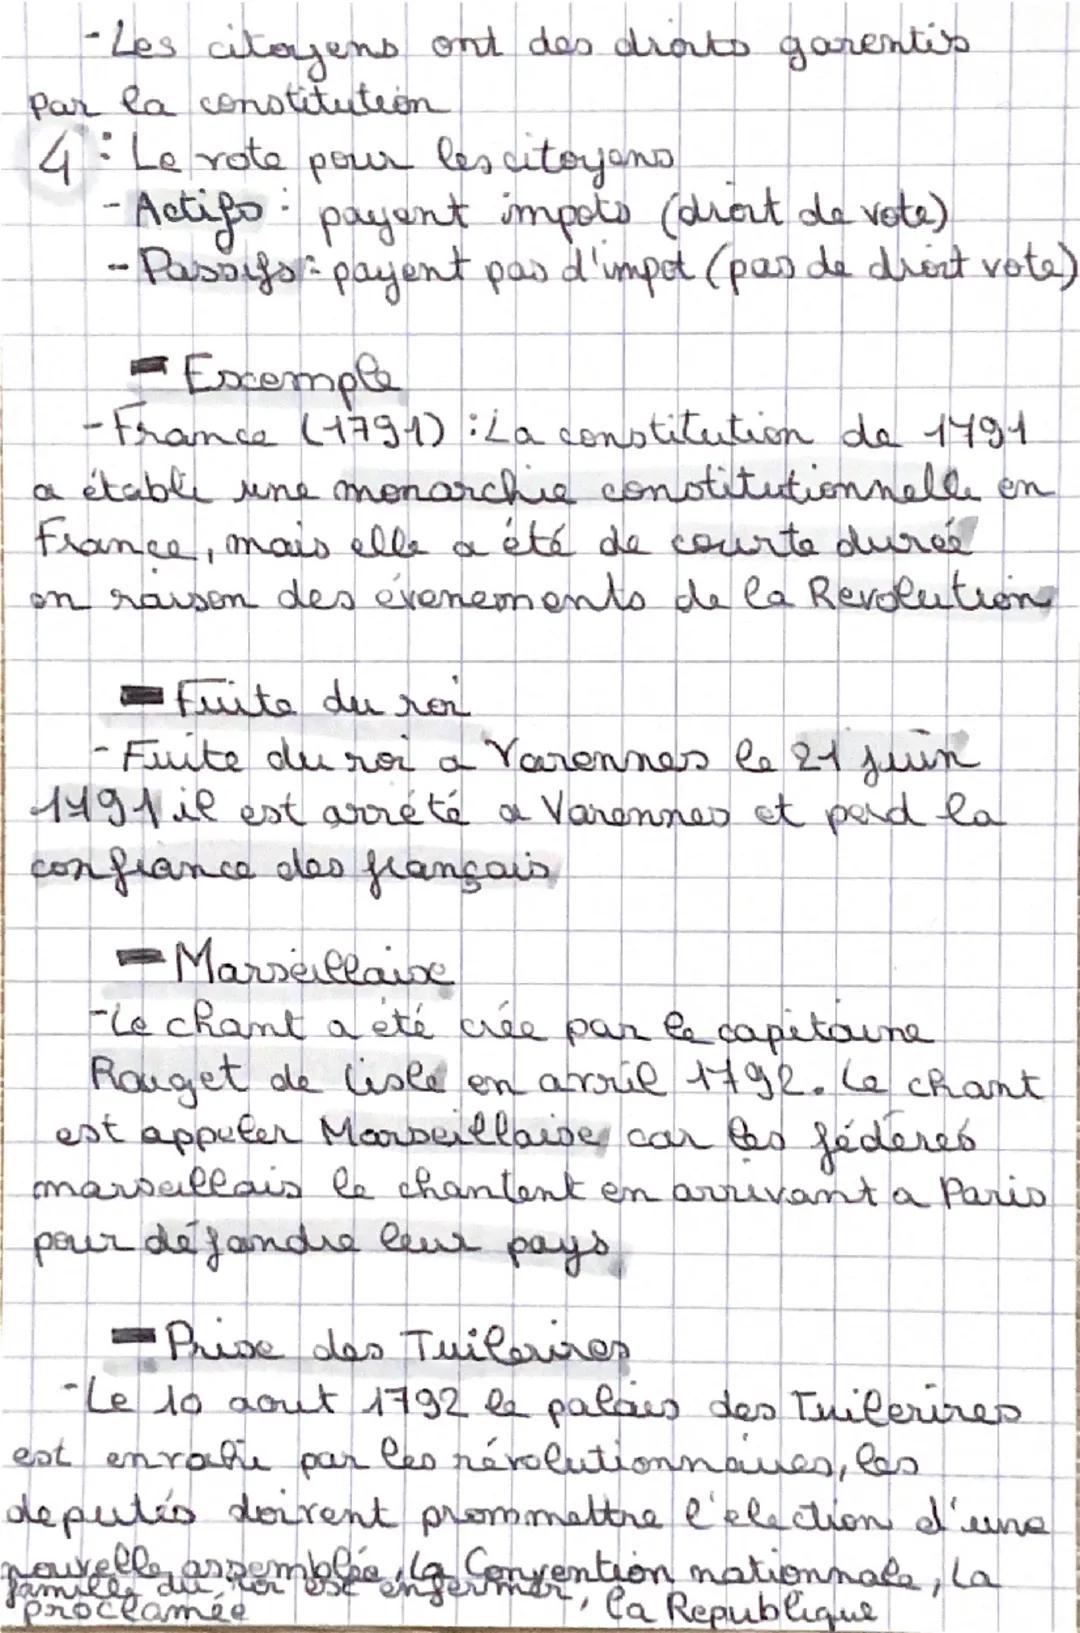 - Les citoyens ont des droits garentis
par la constitution
4 : Le vote pour les citoyens
- Actifs : payent impots (droit de vote)
- Passifs : payent pas d'impot (pas de droit vote)
- Exemple
- France (1791) : La constitution de 1791
a établi une monarchie constitutionnelle en
France, mais elle a été de courte durée
en raison des évenements de la Revolution
- Fuite du roi
- Fuite du roi a Varennes le 21 juin
1791 il est arrété a Varennes et perd la
confiance des français
- Marseillaise
- Le chant a été crée par le capitaine
Rouget de Lisle en avril 1792. Le chant
est appeler Marseillaise car les fédéres
marseillais le chantent en arrivant a Paris
pour défandre leur pays
- Prise des Tuilerires
- Le 10 aout 1792 le palais des Tuilerires
est envahi par les révolutionnaires, les
deputés doivent prommettre l'election d'une
nouvelle assemblée, la Convention nationnale, La
famille du roi est enfermer, la Republique
proclamée